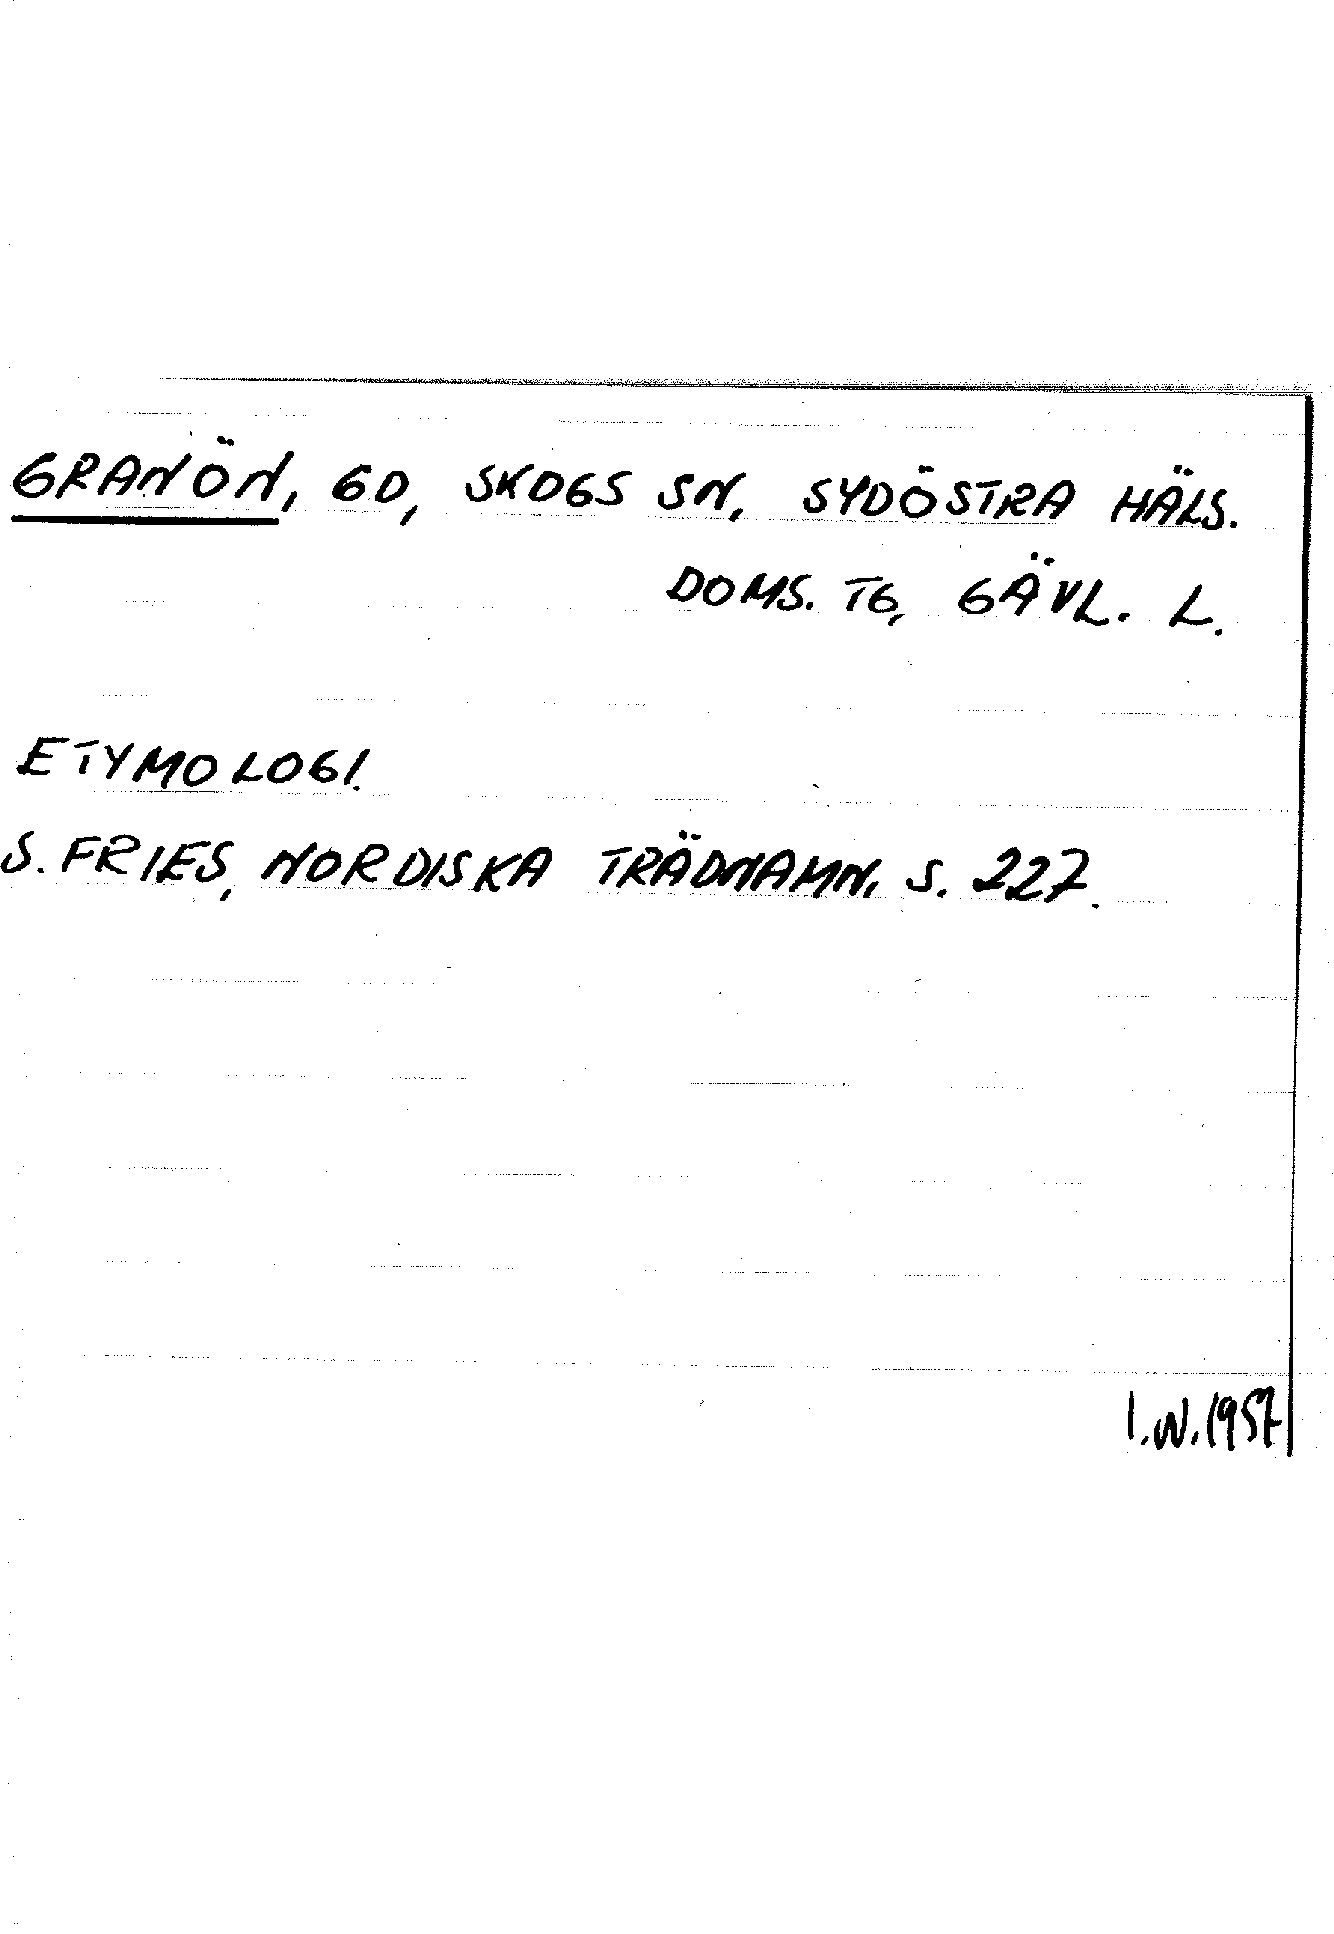 GRANÖN, GD, SKOGS SN, SYDÖSTRA HÄLS.
DOMS. TG, GÄVL. L.
ETYMOLOGI.
S. FRIES, NORDISKA TRÄDNAMN. S. 227.
I.W. 1957